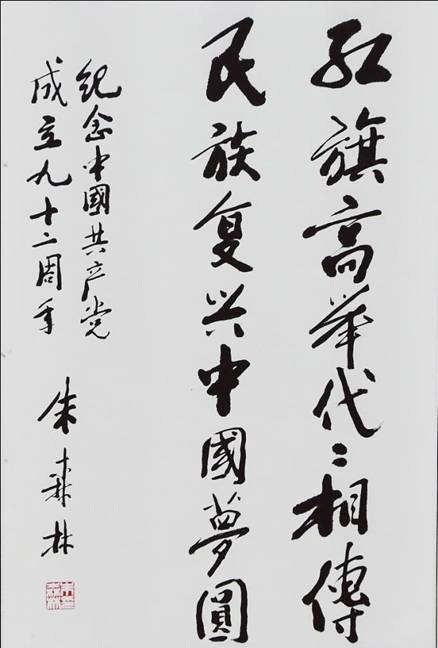 红旗高举代〻相傳
民族复兴中國夢圓
纪念中國共产党
成立九十二周年
朱森林